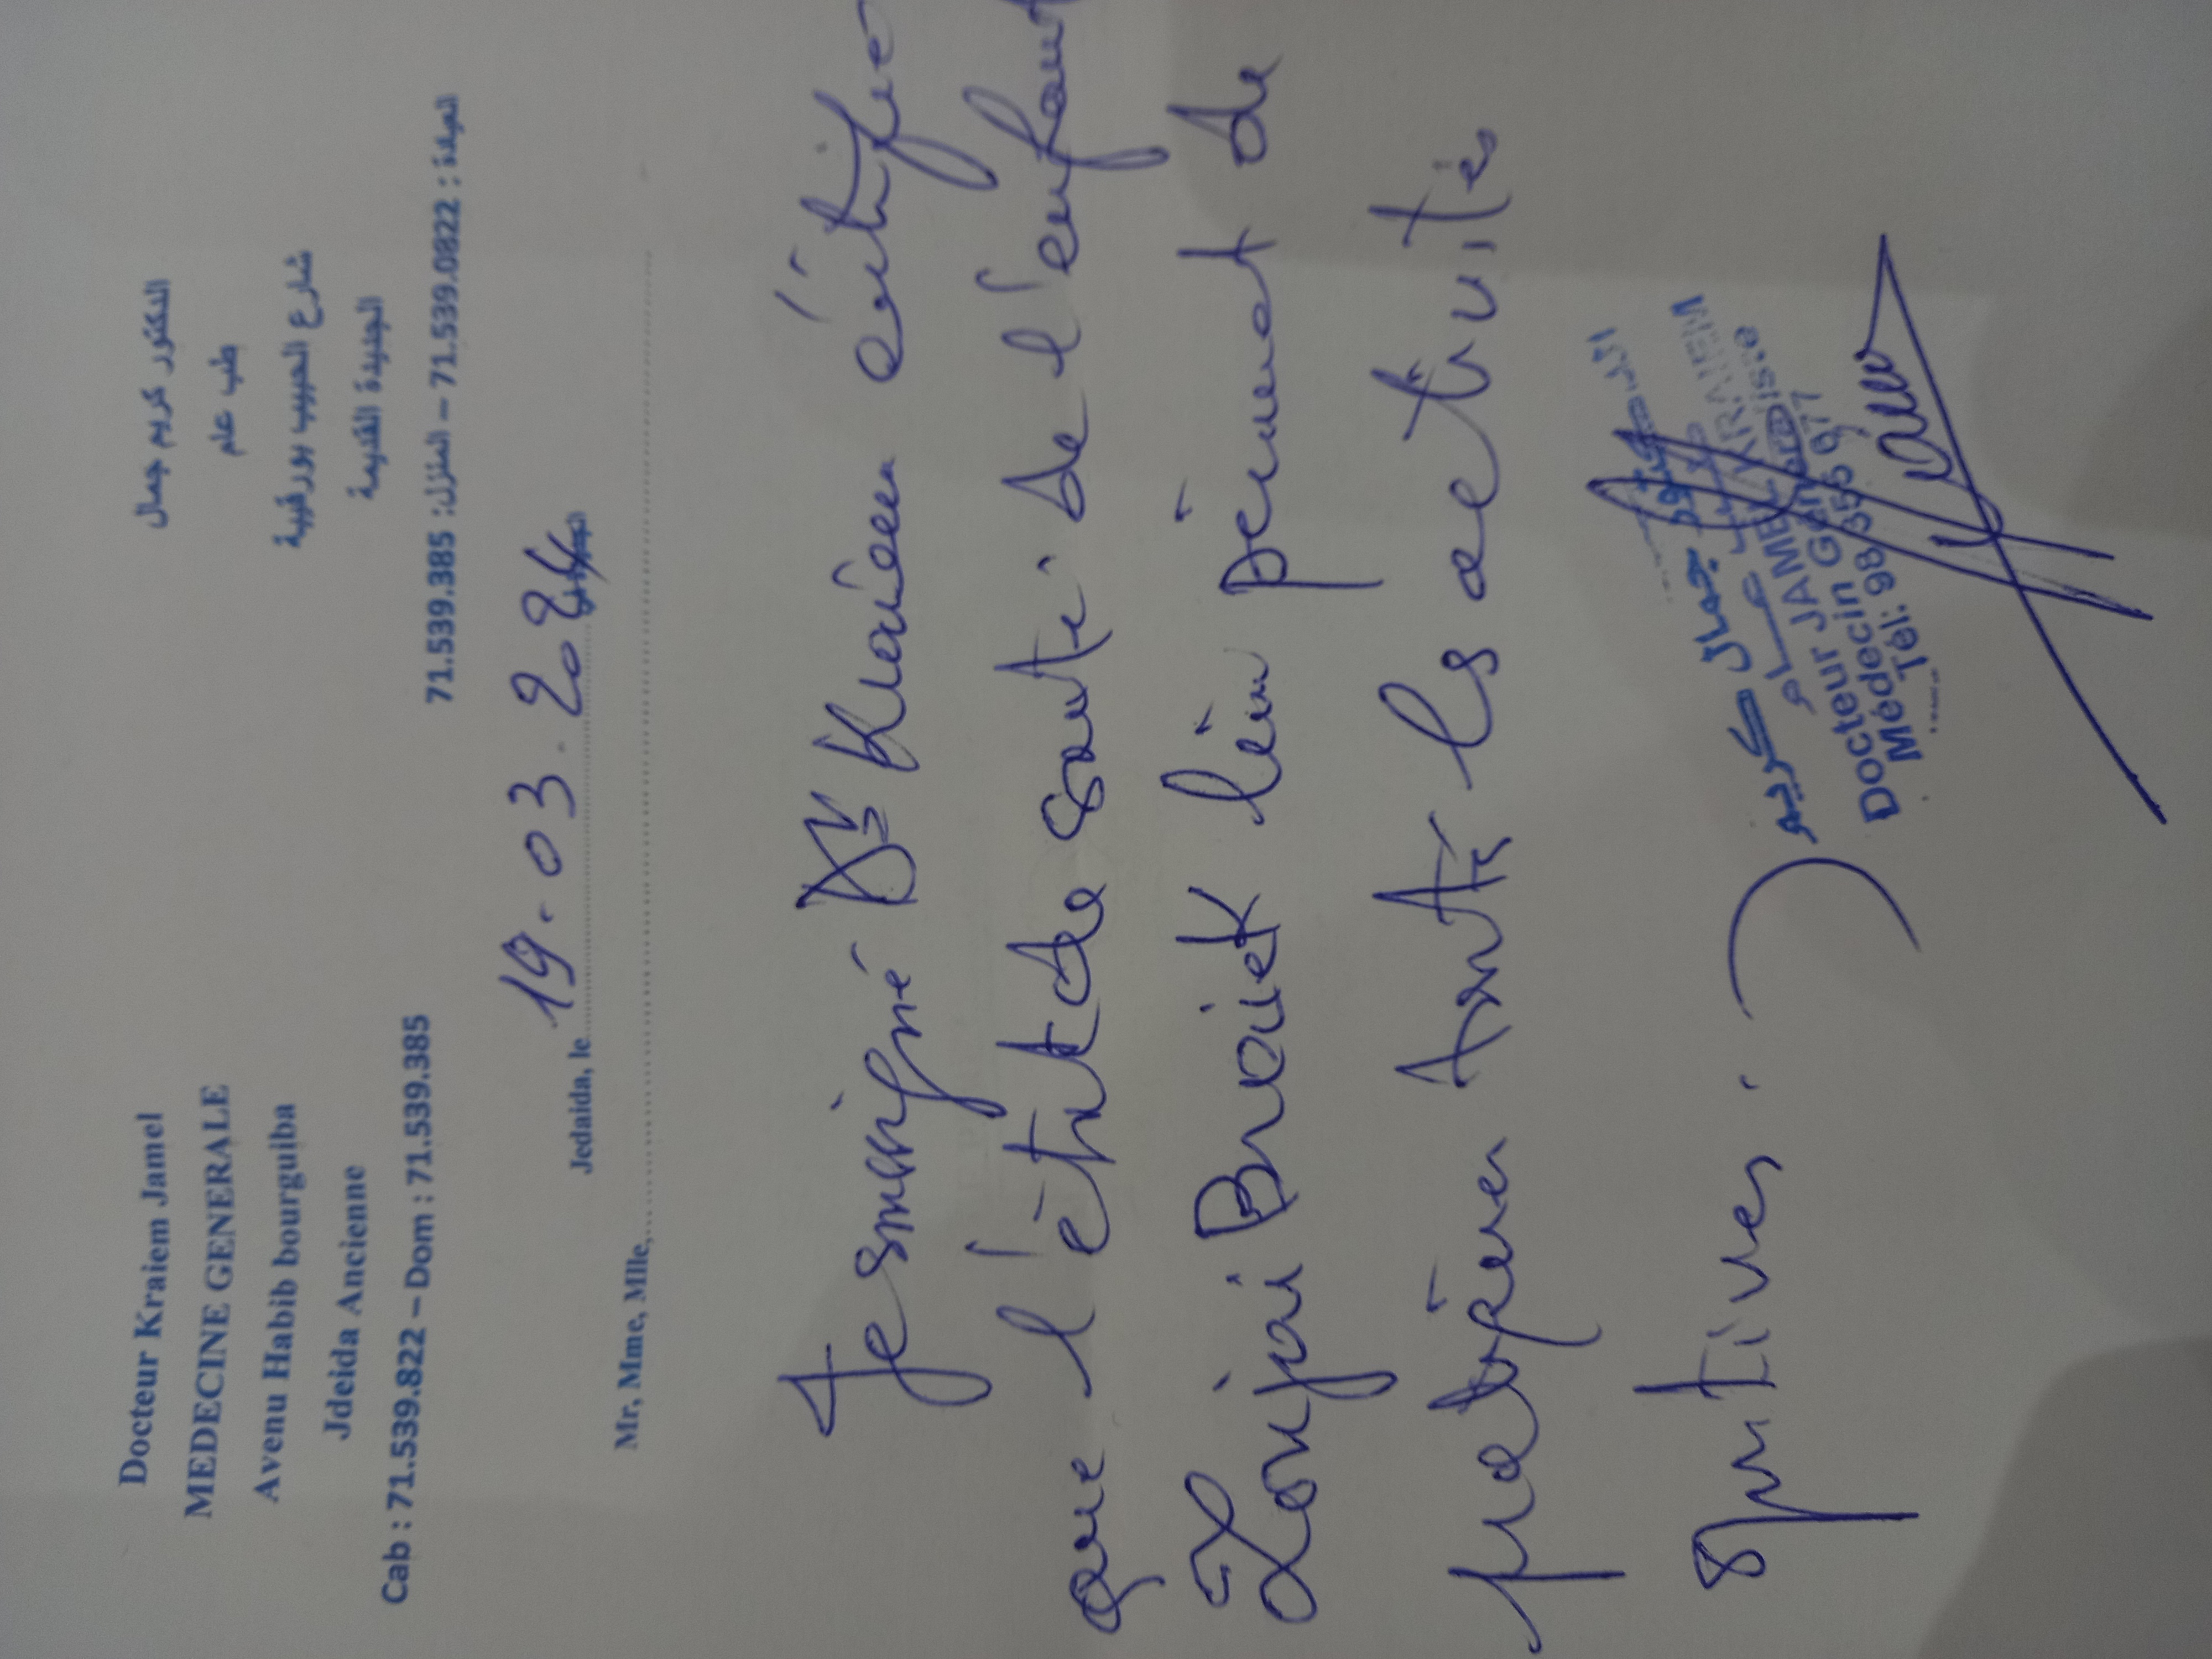 Docteur Kraiem Jamel
MEDECINE GENERALE
Avenu Habib bourguiba
Jdeida Ancienne
Cab : 71.539.822 – Dom : 71.539.385
الدكتور كريم جمال
طب عام
شارع الحبيب بورقيبة
الجديدة القديمة
العيادة : 71.539.0822 – المنزل: 71.539.385
Jedaida, le 19.03.2024 الجديدة في
Mr, Mme, Mlle,
Je soussigné Dr Kraiem certifie
que l'état de santé de l'enfant
Braiek lui permet de
pratiquer toute les activités
sportives.
الدكتور جمال كريم
Docteur JAMEL KRAIEM
Médecin Généraliste
Tél: 98 355 977